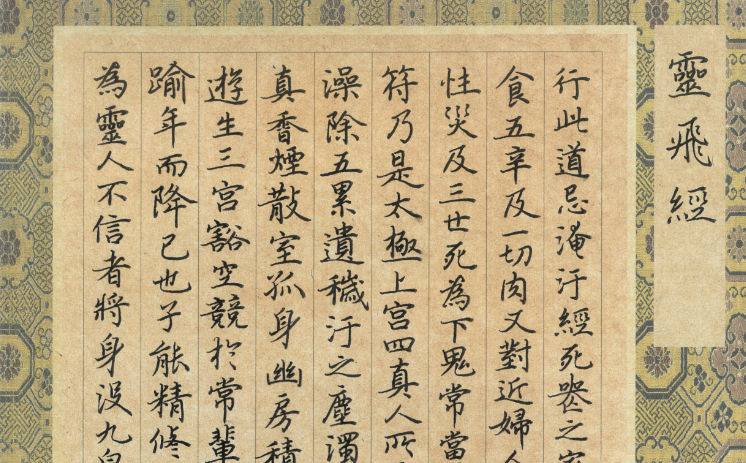 靈飛經
行此道忌淹汙經死喪之家
食五辛及一切肉又對近婦人
性災及三世死為下鬼常當
符乃是太極上宮四真人所
澡除五累遺穢汙之塵濁
真香煙散室孤身幽房積
遊生三宮豁空競於常輩
踰年而降已也子能精修
為靈人不信者將身没九泉